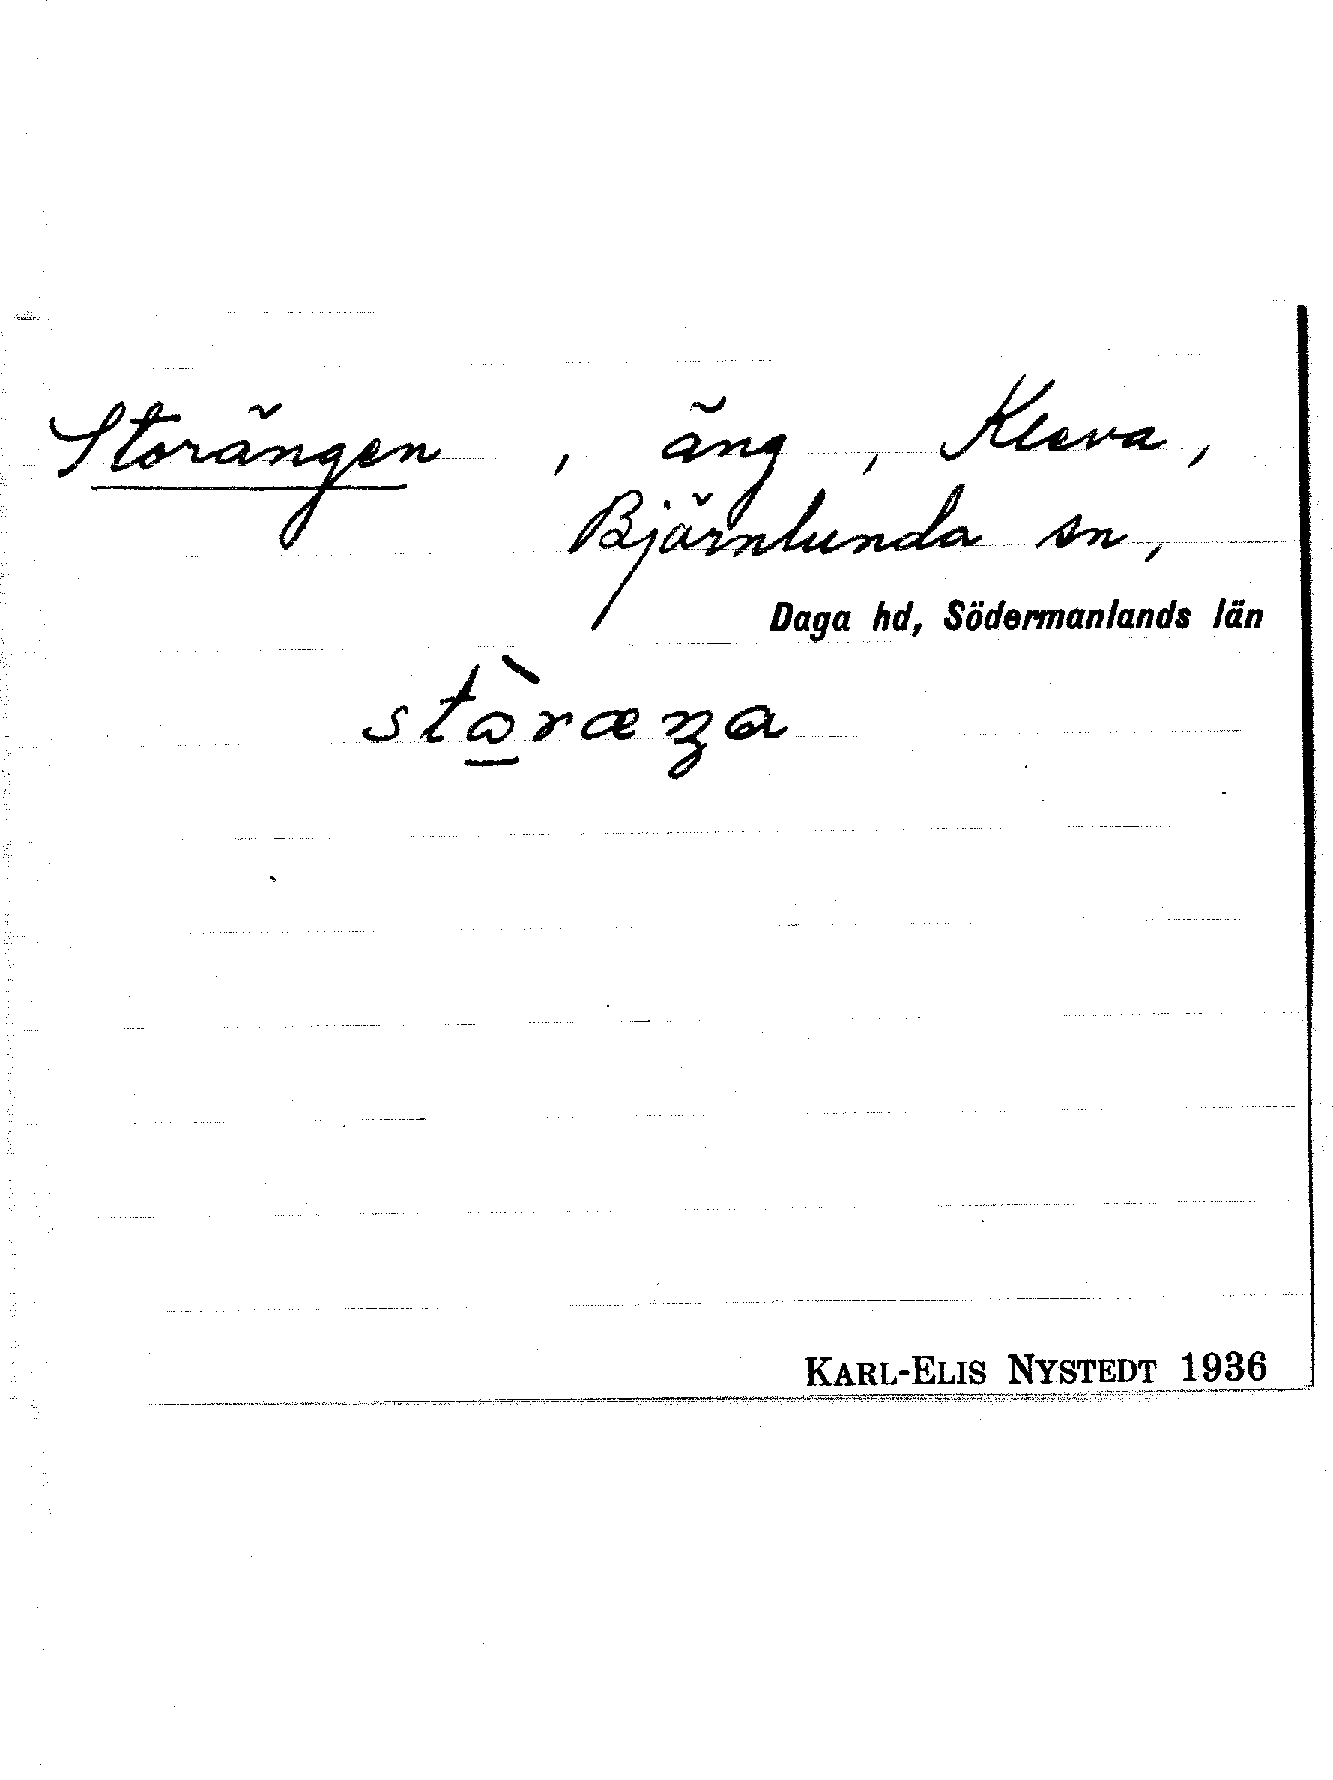 Storängen, äng, Kleva,
Björnlunda sn,
Daga hd, Södermanlands län
stòræŋa
KARL-ELIS NYSTEDT 1936